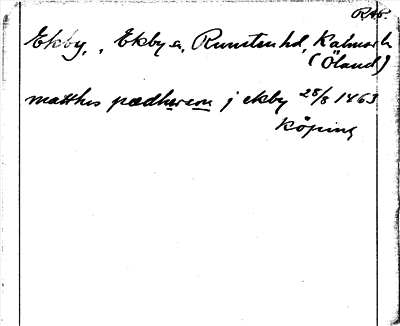 RAp.
Ekby, , Ekby s., Runstens hd, Kalmar l.
(Öland)
matthis pædherson j ekby 28/8 1463
Köping